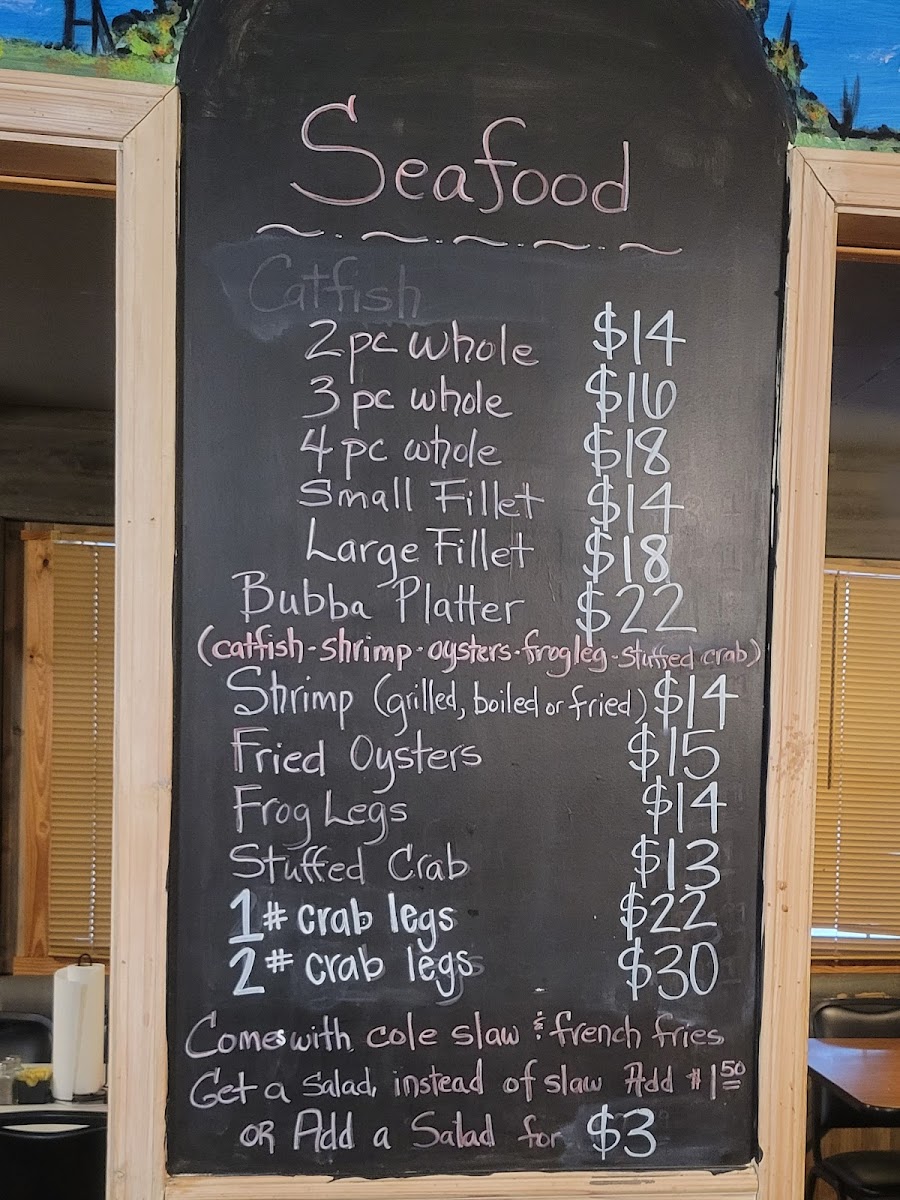 Seafood
Catfish
2 pc whole $14
3 pc whole $16
4 pc whole $18
Small Fillet $14
Large Fillet $18
Bubba Platter $22
(catfish - shrimp - oysters - frogleg - stuffed crab)
Shrimp (grilled, boiled or fried) $14
Fried Oysters $15
Frog Legs $14
Stuffed Crab $13
1# crab legs $22
2# crab legs $30
Comes with cole slaw & french fries
Get a salad, instead of slaw Add $1.50
OR Add a Salad for $3